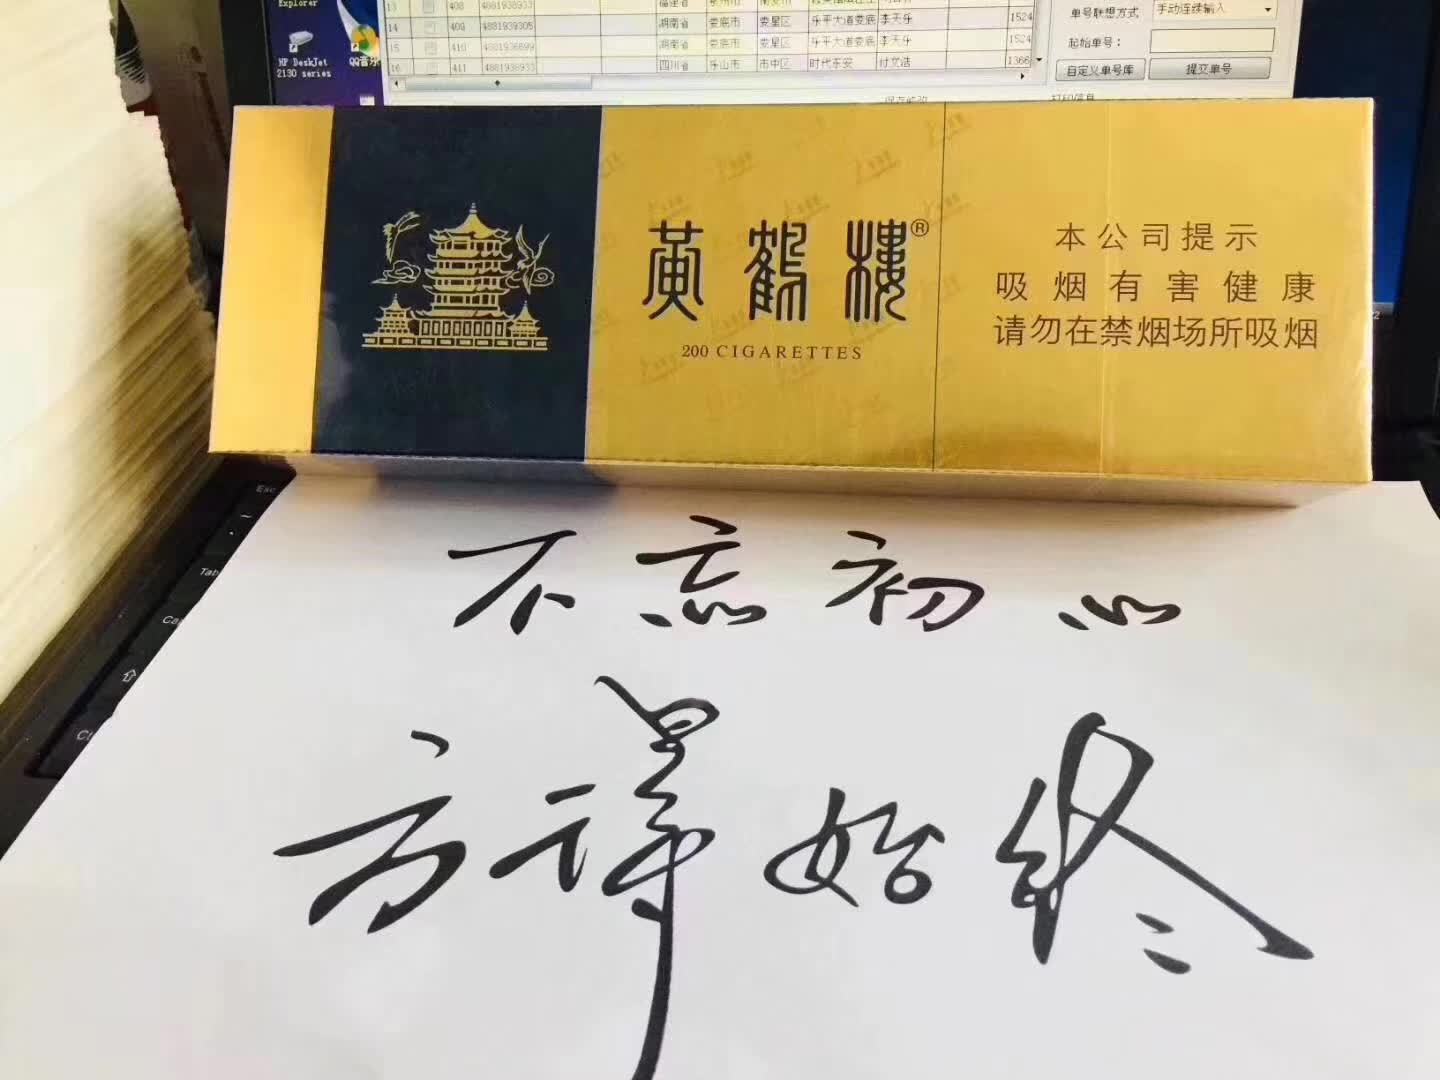 Explorer
HP DeskJet
2130 series
QQ音乐
13 408 4881938933
14 409 4881939305 湖南省 娄底市 娄星区 乐平大道娄底 李天乐 1524
15 410 4881938899 湖南省 娄底市 娄星区 乐平大道娄底 李天乐 1524
16 411 4881938933 四川省 乐山市 市中区 时代东安 付文浩 1366
单号联想方式 手动连续输入
起始单号：
自定义单号库 提交单号
打印信息
黄鹤楼®
200 CIGARETTES
本公司提示
吸烟有害健康
请勿在禁烟场所吸烟
Esc
Tab
不忘初心
方得始终